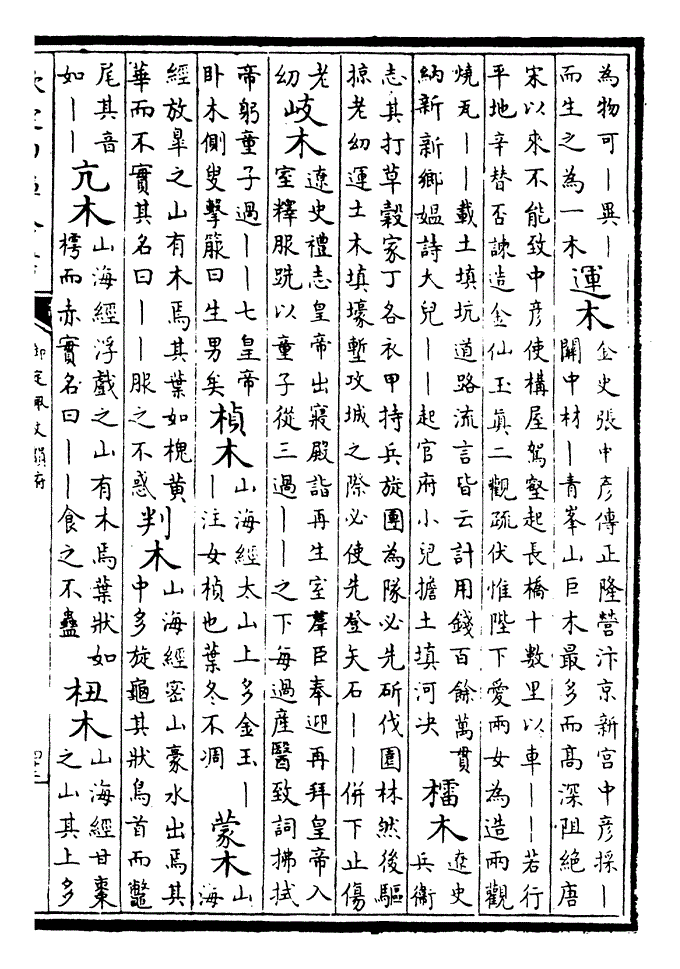 為物可丨異丨
而生之為一木
運木
金史張中彥傳正隆營汴京新宫中彥採丨
關中材丨青峯山巨木最多而高深阻絕唐
宋以來不能致中彥使構屋駕壑起長橋十數里以車丨丨若行
平地辛替否諫造金仙玉眞二觀疏伏惟陛下愛兩女為造兩觀
燒瓦丨丨載土填坑道路流言皆云計用錢百餘萬貫
納新新鄉媪詩大兒丨丨起官府小兒擔土填河决
檑木
遼史
兵衛
志其打草穀家丁各衣甲持兵旋團為隊必先斫伐園林然後驅
掠老幼運土木填壕塹攻城之際必使先登矢石丨丨併下止傷
老
幼
岐木
遼史禮志皇帝出寢殿詣再生室羣臣奉迎再拜皇帝入
室釋服跣以童子從三過丨丨之下每過産醫致詞拂拭
帝躬童子過丨丨七皇帝
卧木側叟擊箙曰生男矣
楨木
山海經太山上多金玉丨
丨注女楨也葉冬不凋
蒙木
山
海
經放臯之山有木焉其葉如槐黄
華而不實其名曰丨丨服之不惑
判木
山海經密山豪水出焉其
中多旋龜其狀鳥首而鼈
尾其音
如丨丨
亢木
山海經浮戲之山有木焉葉狀如
樗而赤實名曰丨丨食之不蠱
杻木
山海經甘棗
之山其上多
御定佩文韻府